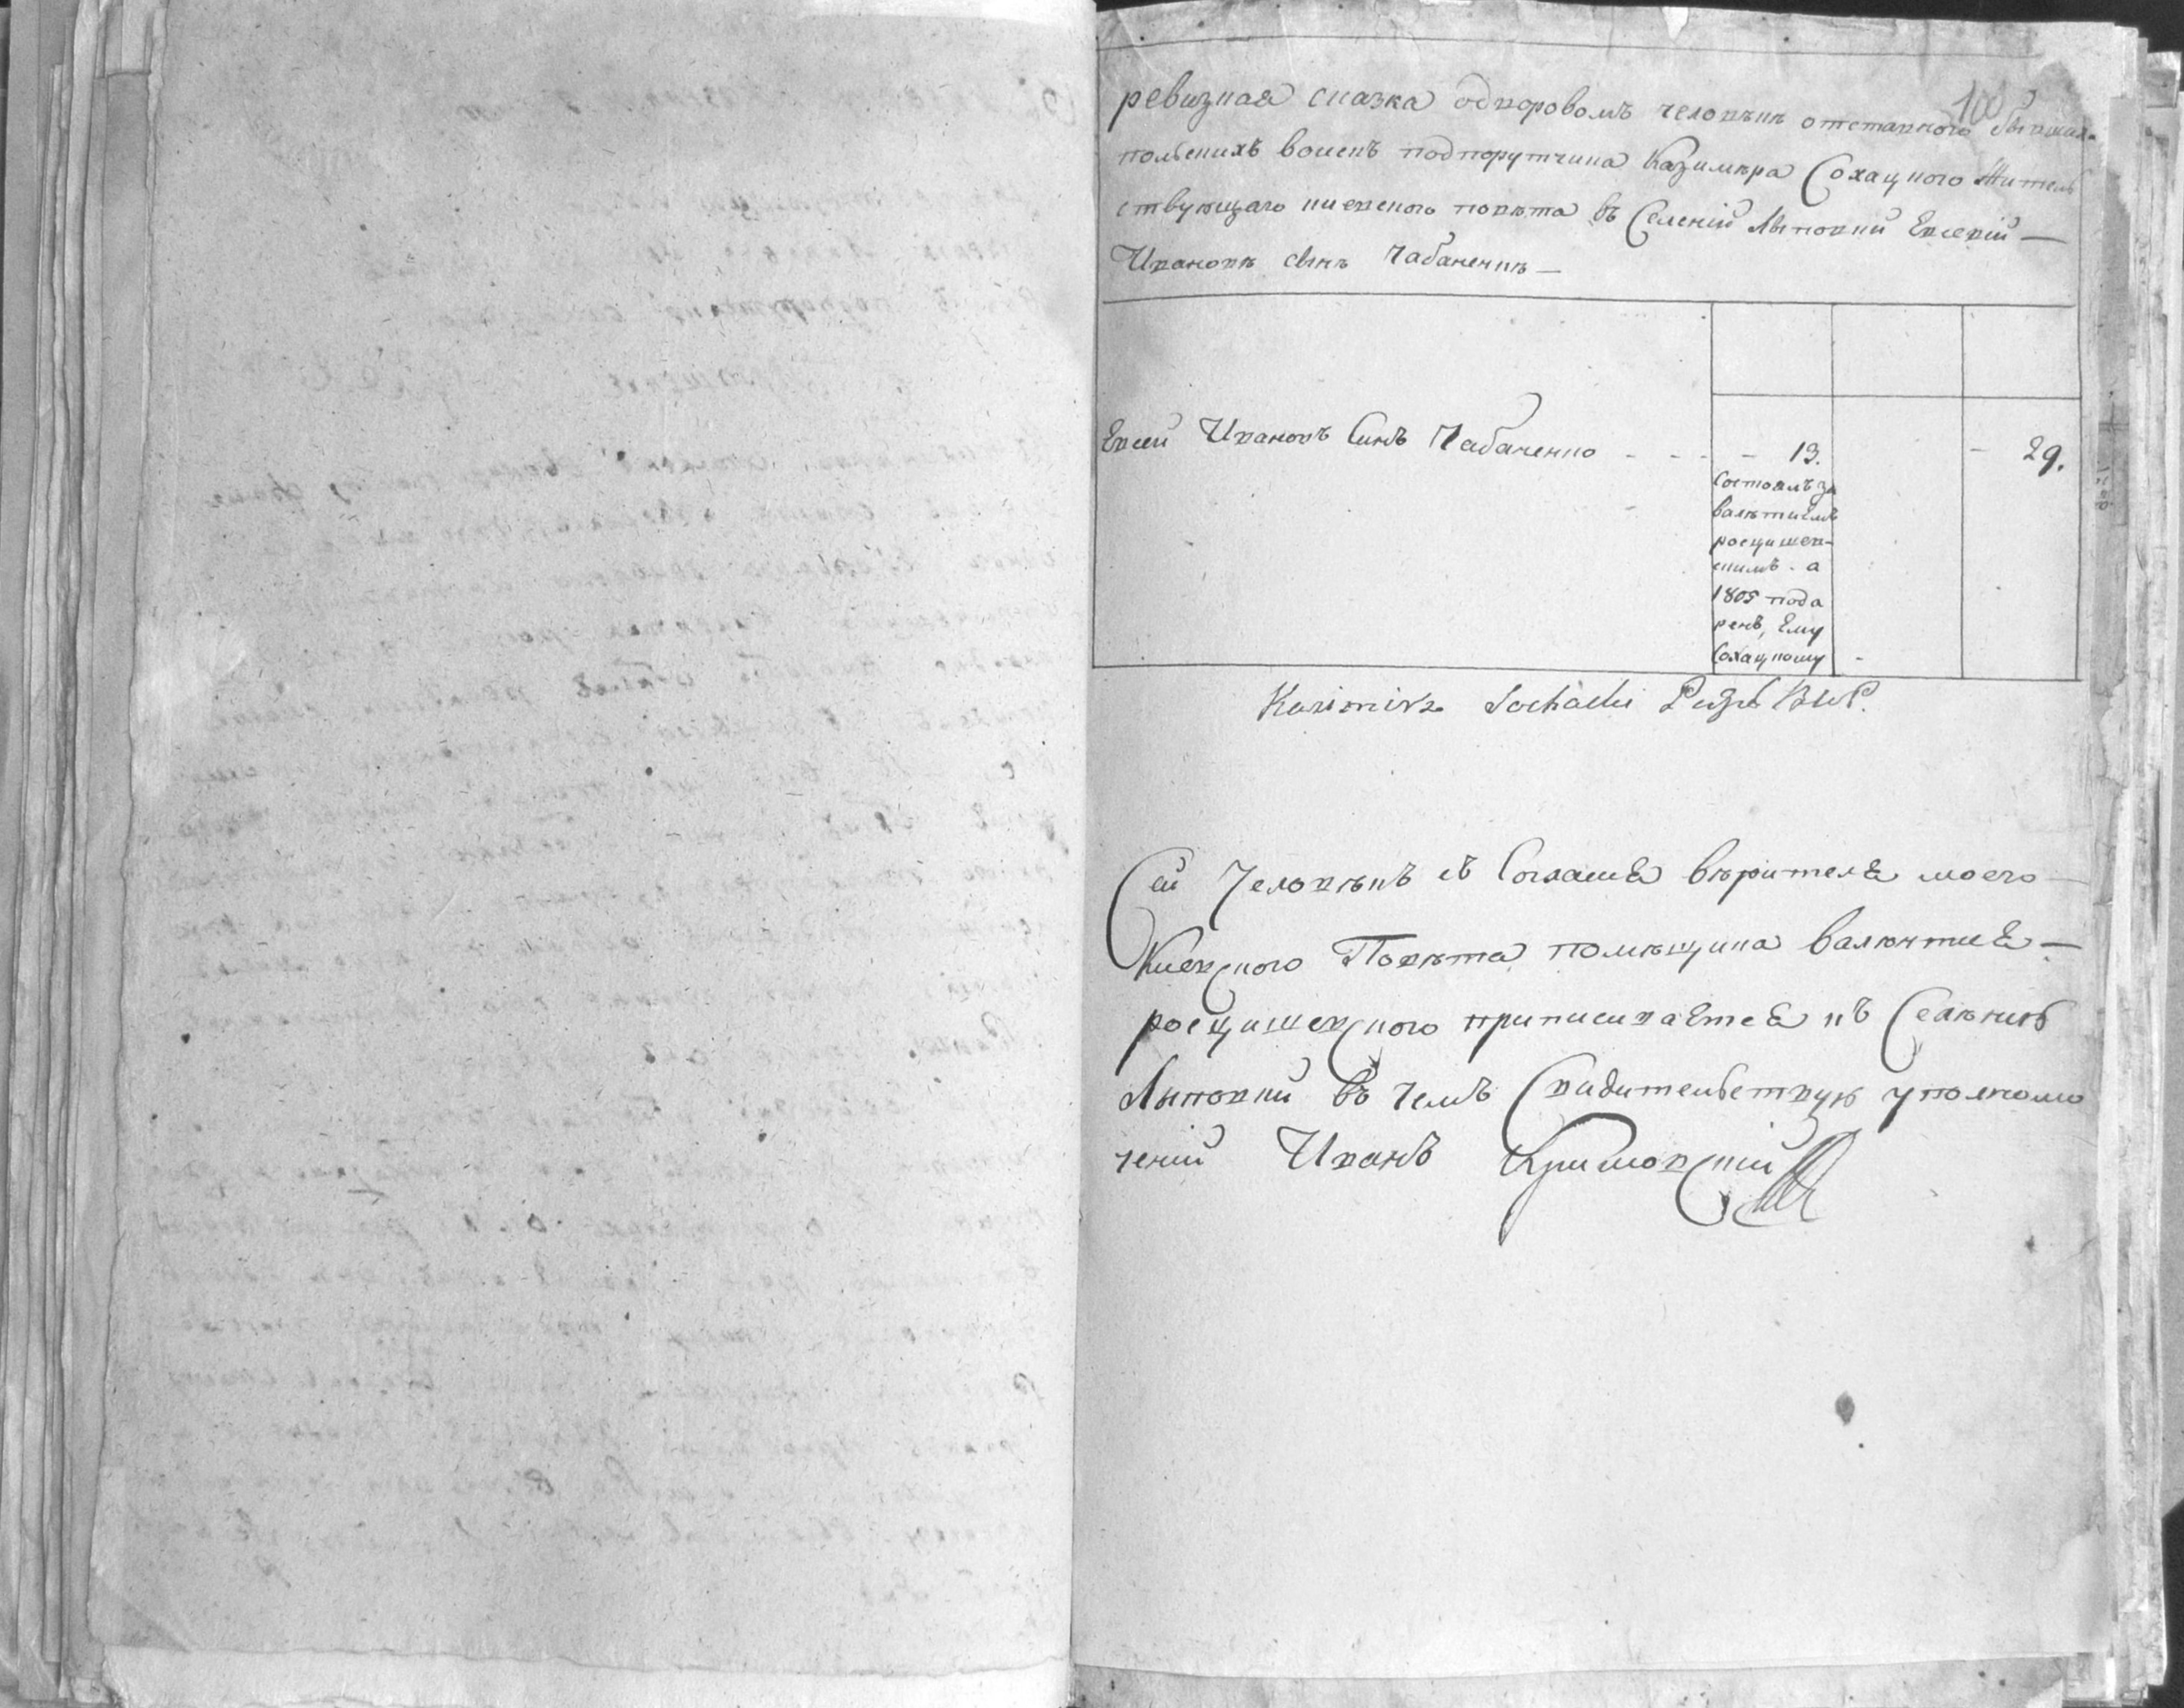 100
ревизная сказка одворовомъ человѣкѣ отставного бывших
польскихъ воискъ подпорутчика Казимѣра Сохацкого Житель
ствующаго киевского повѣта въ Селений Лыповки Евсевий —
Ивановѣ сынѣ Чабаненкѣ —
Евсей Ивановъ Синъ Чабаненко - - - - 13. - 29.
Состоялъ за
валѣтиемъ
росцишев-
скимъ . а
1805 пода
ренъ, Ему
Сохацкому -
Kazimirz Sochacki
Сей Человѣкъ съ Согласия вѣрителя моего —
Киевского Повѣта помѣщика валѣнтия —
росцишевского приписиваЕтся къ Селѣнию
Лыповки въ чемъ Свидительствую уполномо
чений Иванъ Кримовский